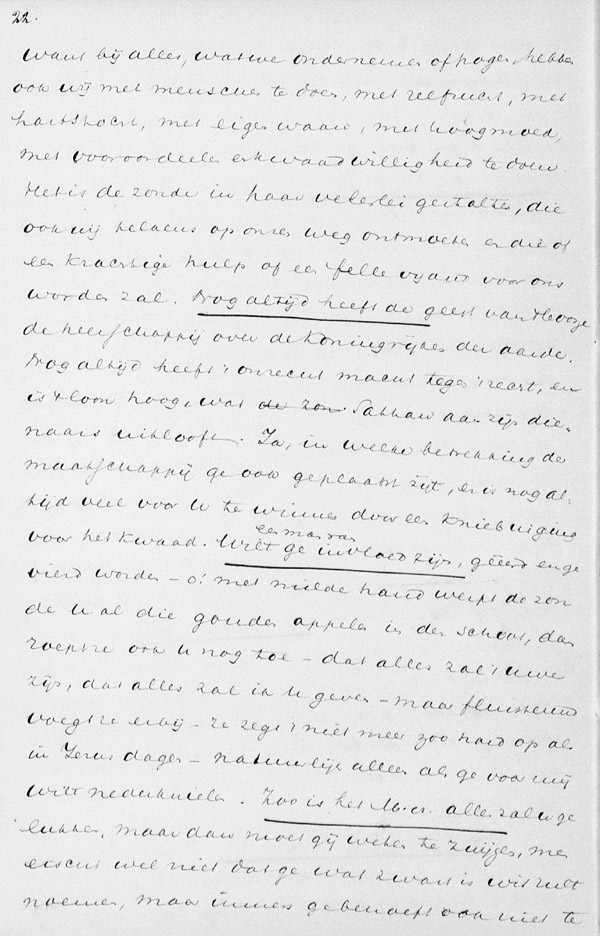 22.
want bij alles, wat we ondernemen of pogen, hebben
ook wij met menschen te doen, met zelfzucht, met
hartstocht, met eigen waan, met hoogmoed,
met vooroordeelen en kwaadwilligheid te doen.
Het is de zonde in haar velerlei gestalten, die
ook wij helaas op onzen weg ontmoeten en die of
een krachtige hulp of een felle vijand voor ons
worden zal. Nog altijd heeft de geest van den booze
de heerschappij over de koningrijken der aarde.
Nog altijd heeft 't onrecht macht tegen 't recht, en
is 't loon hoog, wat de zon Satan aan zijn die-
naars uitlooft. Ja, in welke betrekking de
maatschappij ge ook geplaatst zijt, er is nog al-
tijd veel voor U te winnen door een kniebuiging
een man van
voor het kwaad. Wilt ge invloed zijn, geëerd en ge
vierd worden - o! met milde hand werpt de zon
de U al die gouden appelen in den schoot, dan
roept ze ook U nog toe - dat alles zal 't uwe
zijn, dat alles zal ik U geven - maar fluisterend
voegt ze erbij - ze zegt 't niet meer zoo hard op als
in Jezus dagen - natuurlijk alleen als ge voor mij
wilt nederknielen. Zoo is het alles zal u ge
lukken, maar dan moet gij weten te zwijgen, men
eischt wel niet dat ge wat zwart is wit zult
noemen, maar immers ge behoeft ook niet te